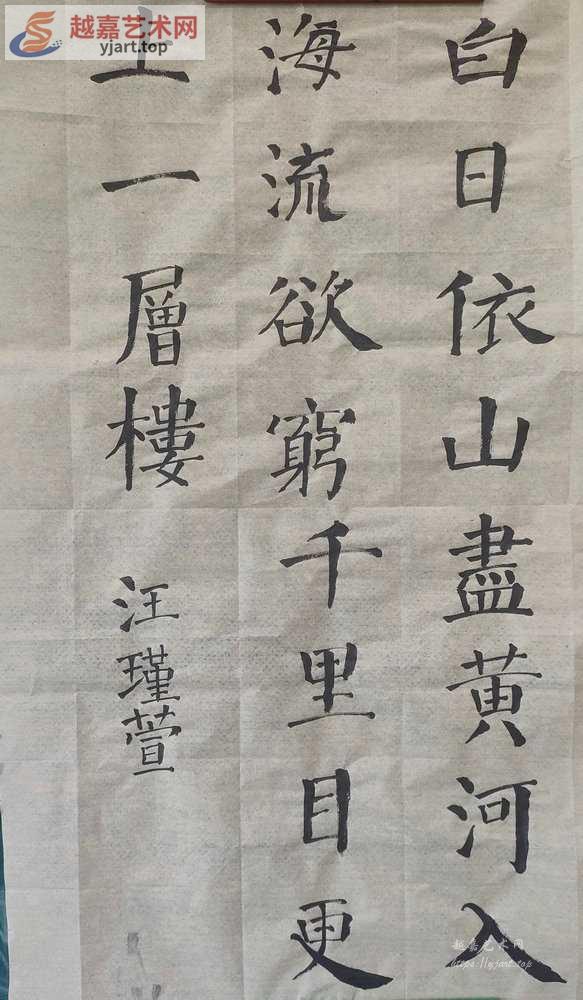 白日依山盡黃河入
海流欲窮千里目更
上一層樓
汪瑾萱
越嘉艺术网
yjart.top
越嘉艺术网
https://yjart.top